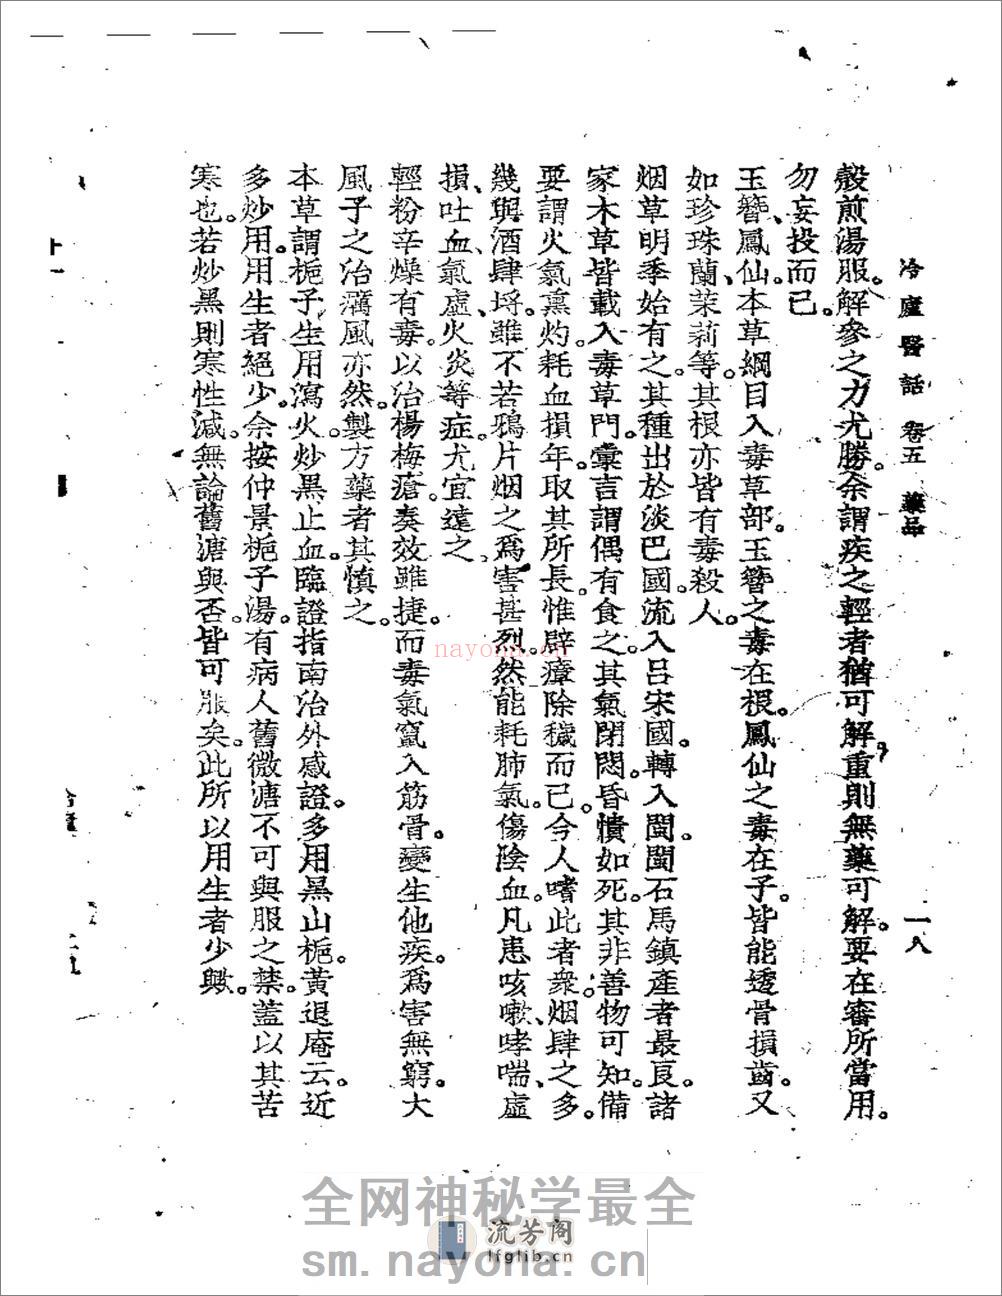 冷廬醫話 卷五 藥品 一八
殼煎湯服。解參之力尤勝。余謂疾之輕者猶可解。重則無藥可解。要在審所當用。
勿妄投而已。
玉簪、鳳仙。本草綱目入毒草部。玉簪之毒在根。鳳仙之毒在子。皆能透骨損齒。又
如珍珠蘭、茉莉等。其根亦皆有毒殺人。
烟草明季始有之。其種出於淡巴國。流入呂宋國。轉入閩。閩石馬鎮產者最良。諸
家本草皆載入毒草門。彙言謂偶有食之。其氣閉悶。昏憒如死。其非善物可知。備
要謂火氣熏灼。耗血損年。取其所長。惟辟瘴除穢而已。今人嗜此者衆。烟肆之多。
幾與酒肆埒。雖不若鴉片烟之爲害甚烈。然能耗肺氣。傷陰血。凡患咳嗽、哮喘、虛
損、吐血、氣虛、火炎等症。尤宜遠之。
輕粉辛燥有毒。以治楊梅瘡。奏效雖捷。而毒氣竄入筋骨。變生他疾。爲害無窮。大
風子之治癘風亦然。製方藥者其慎之。
本草謂梔子生用瀉火。炒黑止血。臨證指南治外感證。多用黑山梔。黃退庵云。近
多炒用。用生者絕少。余按仲景梔子湯。有病人舊微溏不可與服之禁。蓋以其苦
寒也。若炒黑則寒性減。無論舊溏與否。皆可服矣。此所以用生者少歟。
nayona.cn
全网神秘学最全
流芳阁
lfglib.cn
sm.nayona.cn